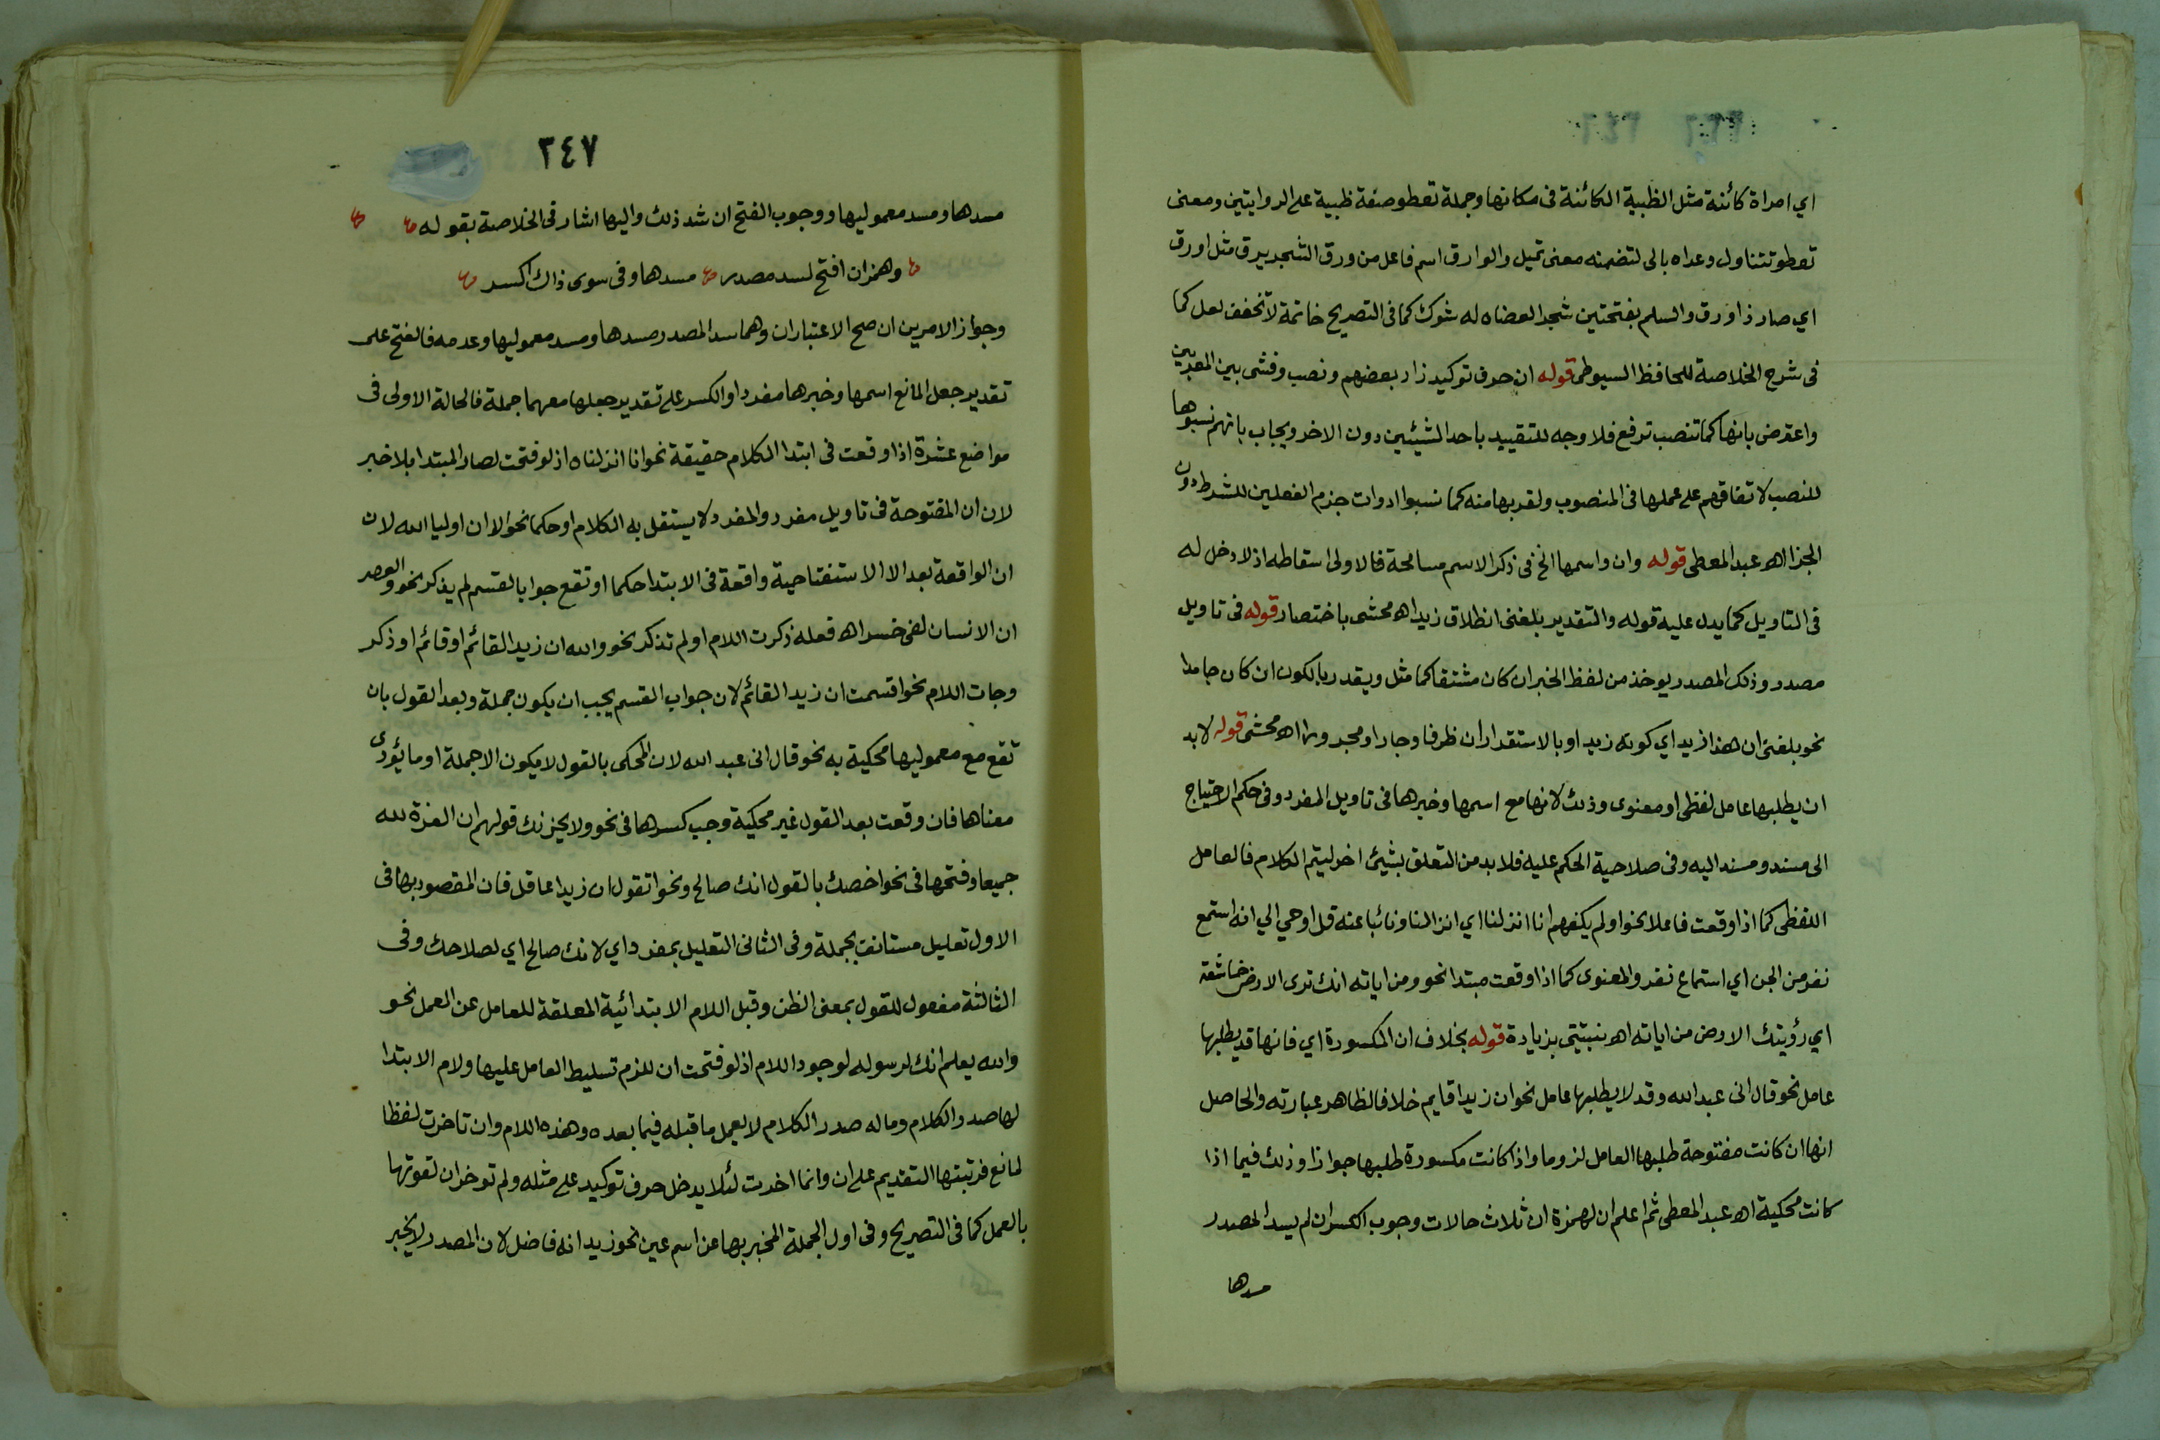 اي امراة كائنة مثل الظبية الكائنة فى مكانها وجملة تعطو صفة ظبية على الروايتين ومعنى
تعطو تتناول وعداه بالى لتضمنه معنى تميل والوارق اسم فاعل من ورق الشجر يرق مثل اورق
اي صار ذا ورق والسلم بفتحتين شجر العضاه له شوك كما فى التصريح خاتمة لا تخفف لعل كما
فى شرح الخلاصة للحافظ السيوطى قوله ان حرف توكيد زاد بعضهم ونصب وفشى بين المعربين
واعترض بانها كما تنصب ترفع فلا وجه للتقييد باحد الشيئين دون الاخر ويجاب بانهم نسبوها
للنصب لاتفاقهم على عملها فى المنصوب ولقربها منه كما نسبوا ادوات جزم الفعلين للشرط دون
الجزا اه عبد المعطى قوله وان واسمها الخ فى ذكر الاسم مسامحة فالاولى اسقاطه اذ لا دخل له
فى التاويل كما يدل عليه قوله والتقدير بلغنى انطلاق زيد اه محشى باختصار قوله فى تاويل
مصدر وذلك المصدر يوخذ من لفظ الخبر ان كان مشتقا كما مثل ويقدر بالكون ان كان جامدا
نحو بلغنى ان هذا زيد اي كونه زيد او بالاستقرار ان ظرفا وجار او مجرورا اه محشى قوله لابد
ان يطلبها عامل لفظى او معنوى وذلك لانها مع اسمها وخبرها فى تاويل المفرد وفى حكم الاحتياج
الى مسند ومسند اليه وفى صلاحية الحكم عليه فلا بد من التعلق بشيئ اخر ليتم الكلام فالعامل
اللفظى كما اذا وقعت فاعلا نحو او لم يكفهم انا انزلنا اي انزالنا ونائبا عنه قل اوحي الي انه استمع
نفر من الجن اي استماع نفر والمعنوى كما اذا وقعت مبتدا نحو ومن اياته انك ترى الارض خاشعة
اي رؤيتك الارض من اياته اه نبتيتى بزيادة قوله بخلاف ان المكسورة اي فانها قد يطلبها
عامل نحو قال انى عبد الله وقد لا يطلبها عامل نحو ان زيدا قايم خلافا لظاهر عبارته والحاصل
انها ان كانت مفتوحة طلبها العامل لزوما واذا كانت مكسورة طلبها جوازا وذلك فيما اذا
كانت محكية اه عبد المعطى ثم اعلم ان لهمزة ان ثلاث حالات وجوب الكسر ان لم يسد المصدر
مسدها
٢٤٧
مسدها ومسد معموليها ووجوب الفتح ان سد ذلك واليها اشار فى الخلاصة بقوله
وهمز ان افتح لسد مصدر مسدها وفى سوى ذاك اكسر
وجواز الامرين ان صح الاعتباران وهما سد المصدر مسدها ومسد معموليها وعدمه فالفتح على
تقدير جعل المانع اسمها وخبرها مفردا والكسر على تقدير جعلها معهما جملة فالحالة الاولى فى
مواضع عشرة اذا وقعت فى ابتدا الكلام حقيقة نحو انا انزلناه اذ لو فتحت لصار المبتدا بلا خبر
لان ان المفتوحة فى تاويل مفرد والمفرد لا يستقل به الكلام او حكما نحو الا ان اوليا الله لان
ان الواقعة بعد الا الاستفتاحية واقعة فى الابتدا حكما او تقع جوابا لقسم لم يذكر نحو والعصر
ان الانسان لفى خسر اه فعله ذكرت اللام او لم تذكر نحو والله ان زيدا لقائم او قائم او ذكر
وجات اللام نحو اقسمت ان زيدا لقائم لان جواب القسم يجب ان يكون جملة وبعد القول بان
تقع مع معموليها محكية به نحو قال انى عبد الله لان المحكى بالقول لا يكون الا جملة او ما يؤدى
معناها فان وقعت بعد القول غير محكية وجب كسرها فى نحو ولا يحزنك قولهم ان العزة لله
جميعا وفتحها فى نحو اخصك بالقول انك صالح ونحو اتقول ان زيدا عاقل فان المقصود بها فى
الاول تعليل مستانف بجملة وفى الثانى التعليل بمفرد اي لانك صالح اي لصلاحك وفى
الثالثة مفعول للقول بمعنى الظن وقبل اللام الابتدائية المعلقة للعامل عن العمل نحو
والله يعلم انك لرسوله لوجود اللام اذ لو فتحت ان للزم تسليط العامل عليها ولام الابتدا
لها صدر الكلام وما له صدر الكلام لا يعمل ما قبله فيما بعده وهذه اللام وان تاخرت لفظا
لمانع فرتبتها التقديم على ان وانما اخرت لئلا يدخل حرف توكيد على مثله ولم توخر ان لقوتها
بالعمل كما فى التصريح وفى اول الجملة المخبر بها عن اسم عين نحو زيد انه فاضل لان المصدر لا يخبر